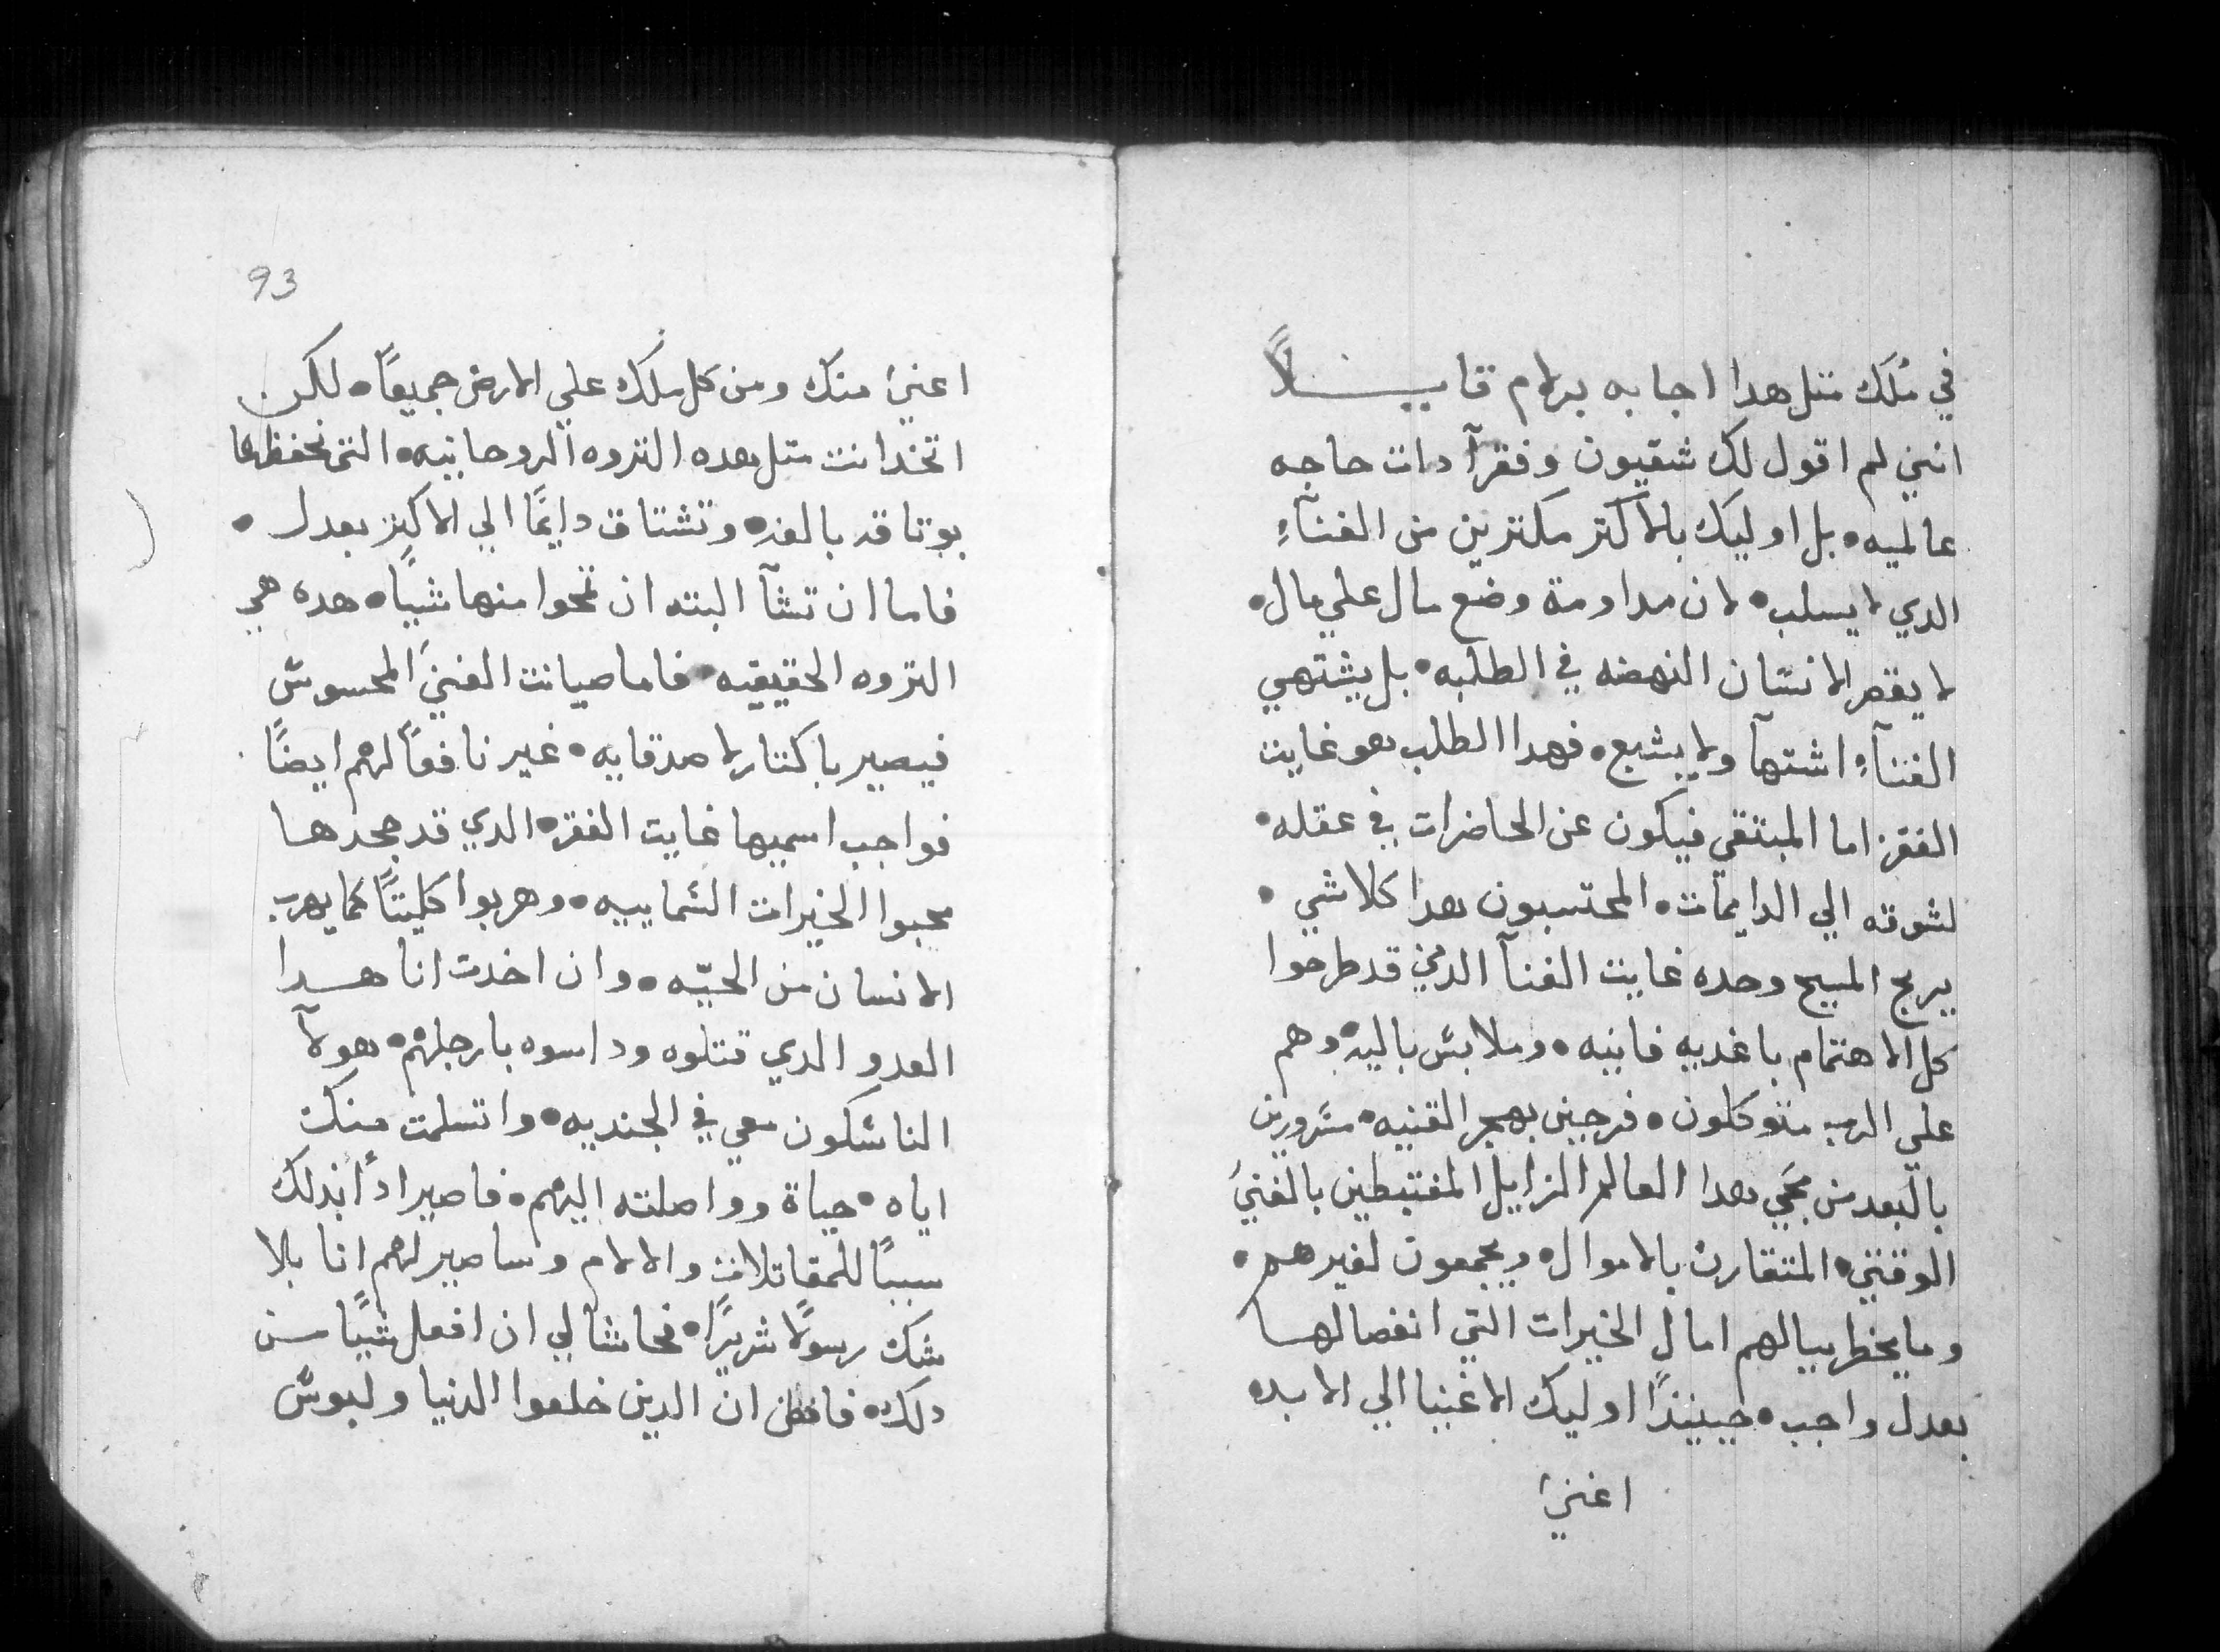 في مُلكَ متل هدا اجابه برلام قايـــلاً
انني لم اقول لك شقيون وفقرآ دات حاجه
عالميه • بل اوليك بالاكتر مكترين من الغنآءِ
الدي لا يسلب • لان مداومة وضع مال علي مال •
لا يقصر الانسان النهضه في الطلبه • بل يشتهي
الغنآءِ اشتهآ ولا يشبع • فهدا الطلب هو غايت
الفقر اما المبتقي فيكون عن الحاضرات في عقله •
لشوقه الي الدايمات • المحتسبون هدا كلاشي •
يربح المسيح وحده غايت الغنآ الدين قد طرحوا
كل الاهتمام باغديه فانيه • وملابس باليه • وهم
علي الرب متوكلون • فرحين بهجر القنيه • مسرورين
بالبعد من محبي هدا العالم الزايل المغتبطين بالغنيَ
الوقتي • المتقارن بالاموال • ويجمعون لغيرهم •
وما يخطر ببالهم امال الخيرات التي انفصالها
بعدل واجب • حينيندًا اوليك الاغنيا الي الابده
اغنيَ
93
اغنيَ منك ومن كل ملك علي الارض جميعًا • لكن
اتخد انت متل هده التروه الروحانيه • التي تحفظها
بوتاقه بالغه • وتشتاق دايمًا الي الاكتر بعدل •
فاما ان تشآ البته ان تمحوا منها شيًا • هده هي
التروه الحقيقيه • فاما صيانت الغنيَ المحسوس
فيصير باكتار لاصدقايه • غير نافعًا لهم ايضًا
فواجب اسميها غايت الفقر • الدي قد جحدها
محبوا الخيرات السماييه • وهربوا كليتًا كما يهرب
الانسان من الحيّه • وان اخدت انا هـــدا
العدو الدي قتلوه وداسوه بارجلهم • هولآ
الناسكون معي في الجنديه • واتسلمت منك
اياه • حياة وواصلته اليهم • فاصير ادًا بدلك
سببًا للمقاتلات والالام وساصير لهم انا بلا
شك رسولًا شريرًا • فحاشا لي ان افعل شيًا من
دلك • فافطن ان الدين خلعوا الدنيا ولبوس